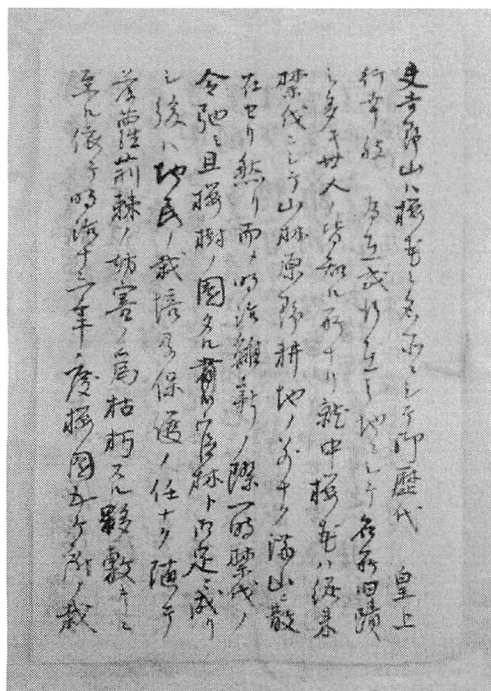 夫吉野山ハ桜花之名所ニシテ御歴代　皇上
行幸被　為在或行在之地ニシテ名所旧蹟
之多キ世人ノ皆知ル所ナリ就中桜花ハ従来
禁伐ニシテ山林原野耕地ノ別ナク満山ニ散
在セリ然リ而ノ明治維新ノ際一時禁伐ノ
令弛ミ且桜樹ノ園タル官林ト御定ニ成リ
シ後ハ地民ノ栽培及保護ノ任ナク随テ
蔦蘿荊棘ノ妨害ノ為枯朽スル夥敷キニ
至ル依テ明治十三年ノ度桜園五ケ所ノ栽